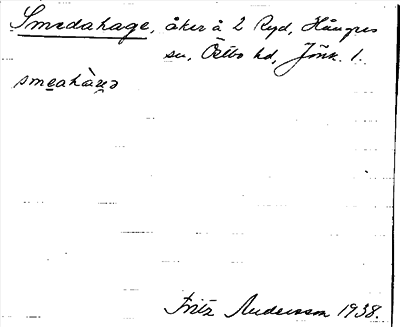 Smedahage, åker å 2 Ryd, Hångers
sn, Östbo hd, Jönk. l.
smeahàgə
Fritz Andersson 1938.